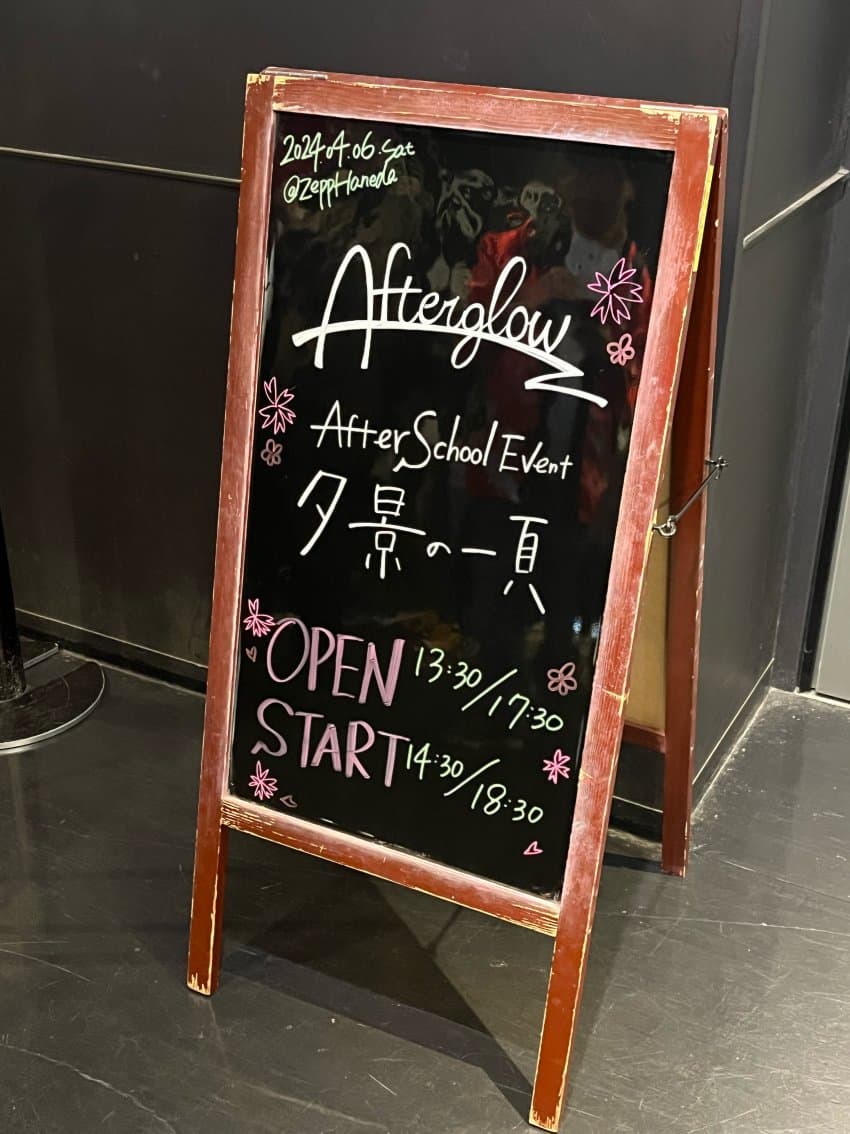 2024.04.06.Sat
@ZeppHaneda
Afterglow
After School Event
夕景の一頁
OPEN 13:30/17:30
START 14:30/18:30